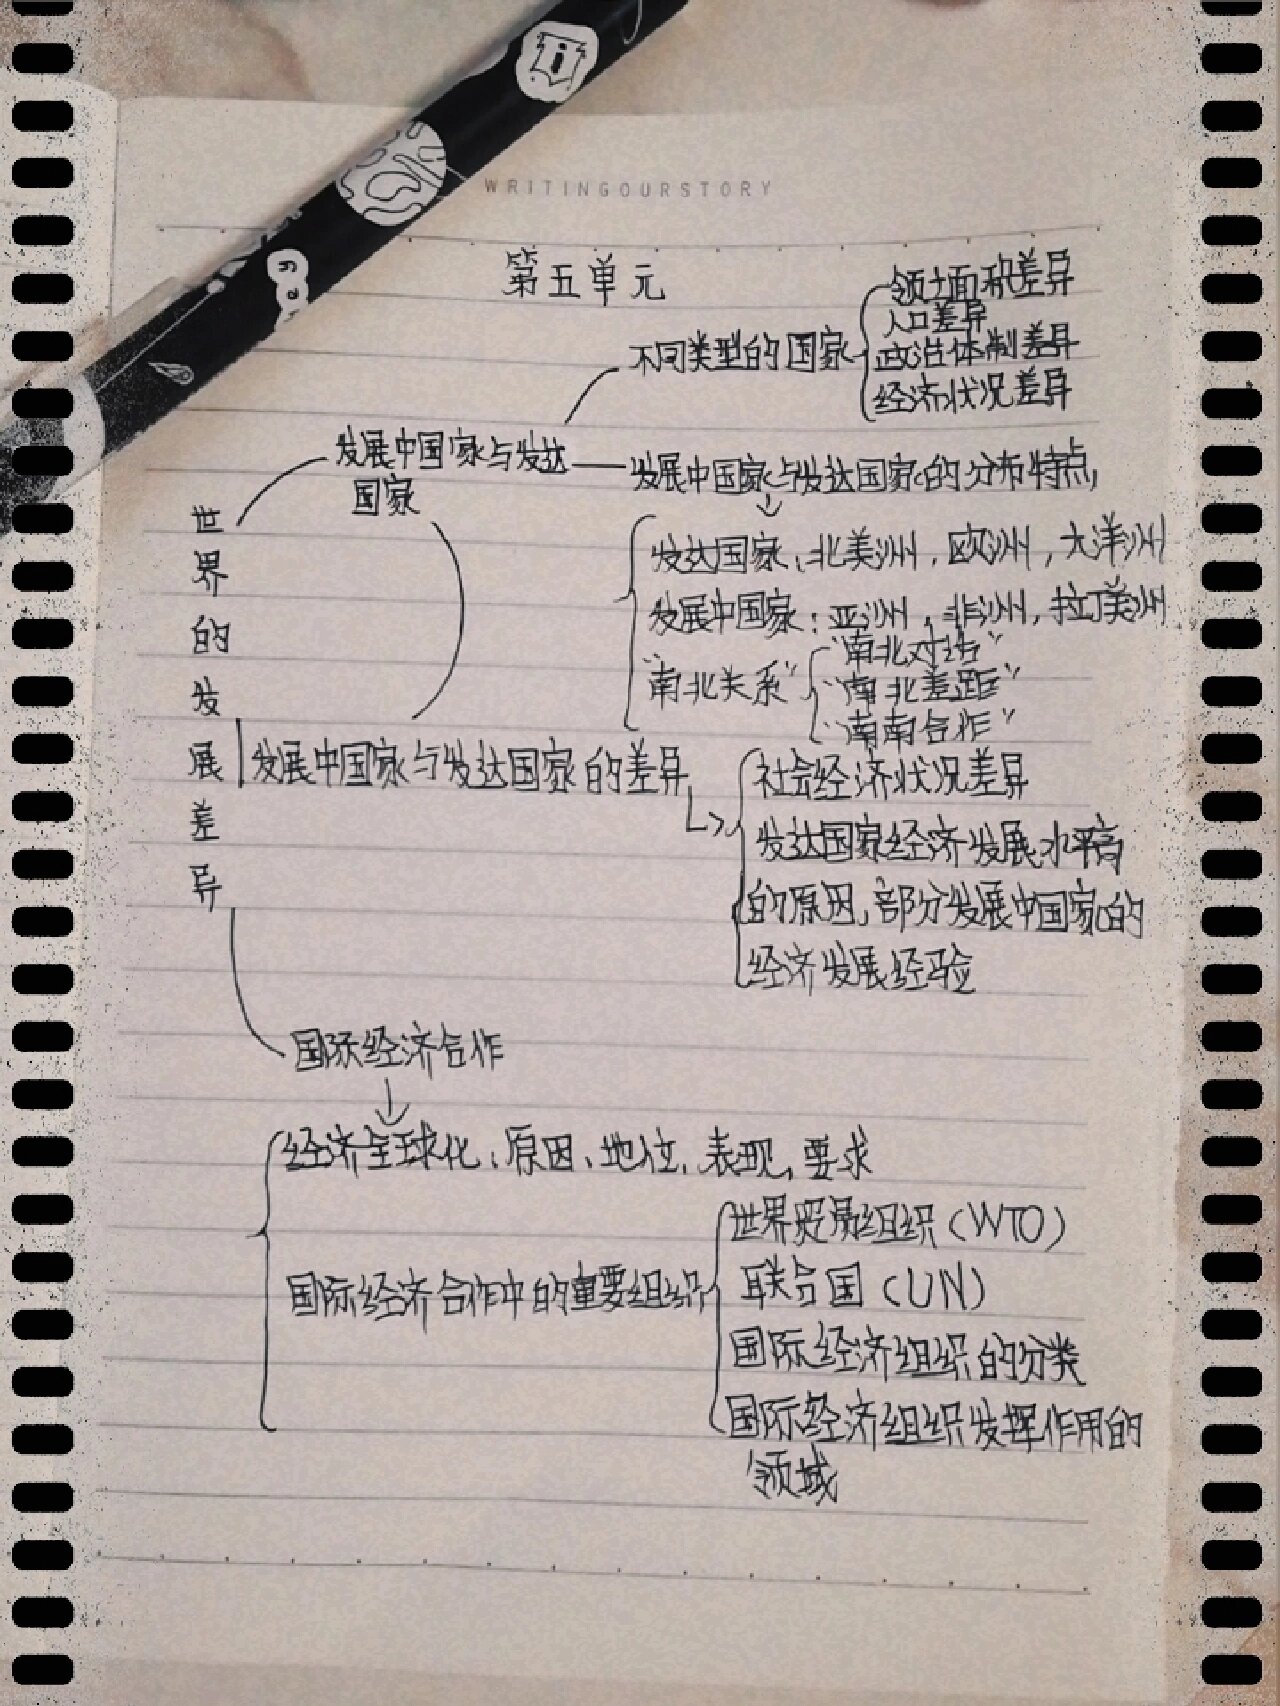 WRITINGOURSTORY
第五单元
领土面积差异
人口差异
不同类型的国家
政治体制差异
经济状况差异
发展中国家与发达
国家
发展中国家与发达国家的分布特点
世界的发展差异
发达国家:北美洲,欧洲,大洋洲
发展中国家:亚洲,非洲,拉丁美洲
"南北关系"
"南北对话"
"南北差距"
"南南合作"
发展中国家与发达国家的差异
社会经济状况差异
发达国家经济发展水平高
的原因,部分发展中国家的
经济发展经验
国际经济合作
经济全球化:原因、地位、表现,要求
国际经济合作中的重要组织
世界贸易组织(WTO)
联合国(UN)
国际经济组织的分类
国际经济组织发挥作用的
领域